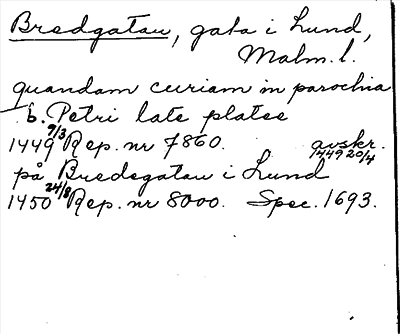 Bredgatan, gata i Lund,
Malm. l.
quandam curiam in parochia
b. Petri late platee
1449 9/3 Rep. nr 7860. avskr. 1449 20/4
på Bredegatan i Lund
1450 24/8 Rep. nr 8000. Spec. 1693.